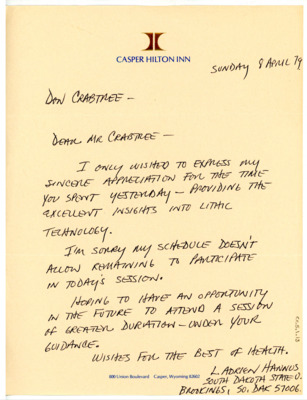 CASPER HILTON INN
SUNDAY 8 APRIL 79
DON CRABTREE —
DEAR MR CRABTREE —
I ONLY WISHED TO EXPRESS MY
SINCERE APPRECIATION FOR THE TIME
YOU SPENT YESTERDAY — PROVIDING THE
EXCELLENT INSIGHTS INTO LITHIC
TECHNOLOGY.
I'M SORRY MY SCHEDULE DOESN'T
ALLOW REMAINING TO PARTICIPATE
IN TODAY'S SESSION.
HOPING TO HAVE AN OPPORTUNITY
IN THE FUTURE TO ATTEND A SESSION
OF GREATER DURATION — UNDER YOUR
GUIDANCE.
WISHES FOR THE BEST OF HEALTH.
L. ADRIEN HANNUS
SOUTH DAKOTA STATE U.
BROOKINGS, SO. DAK 57006.
800 Union Boulevard Casper, Wyoming 82602